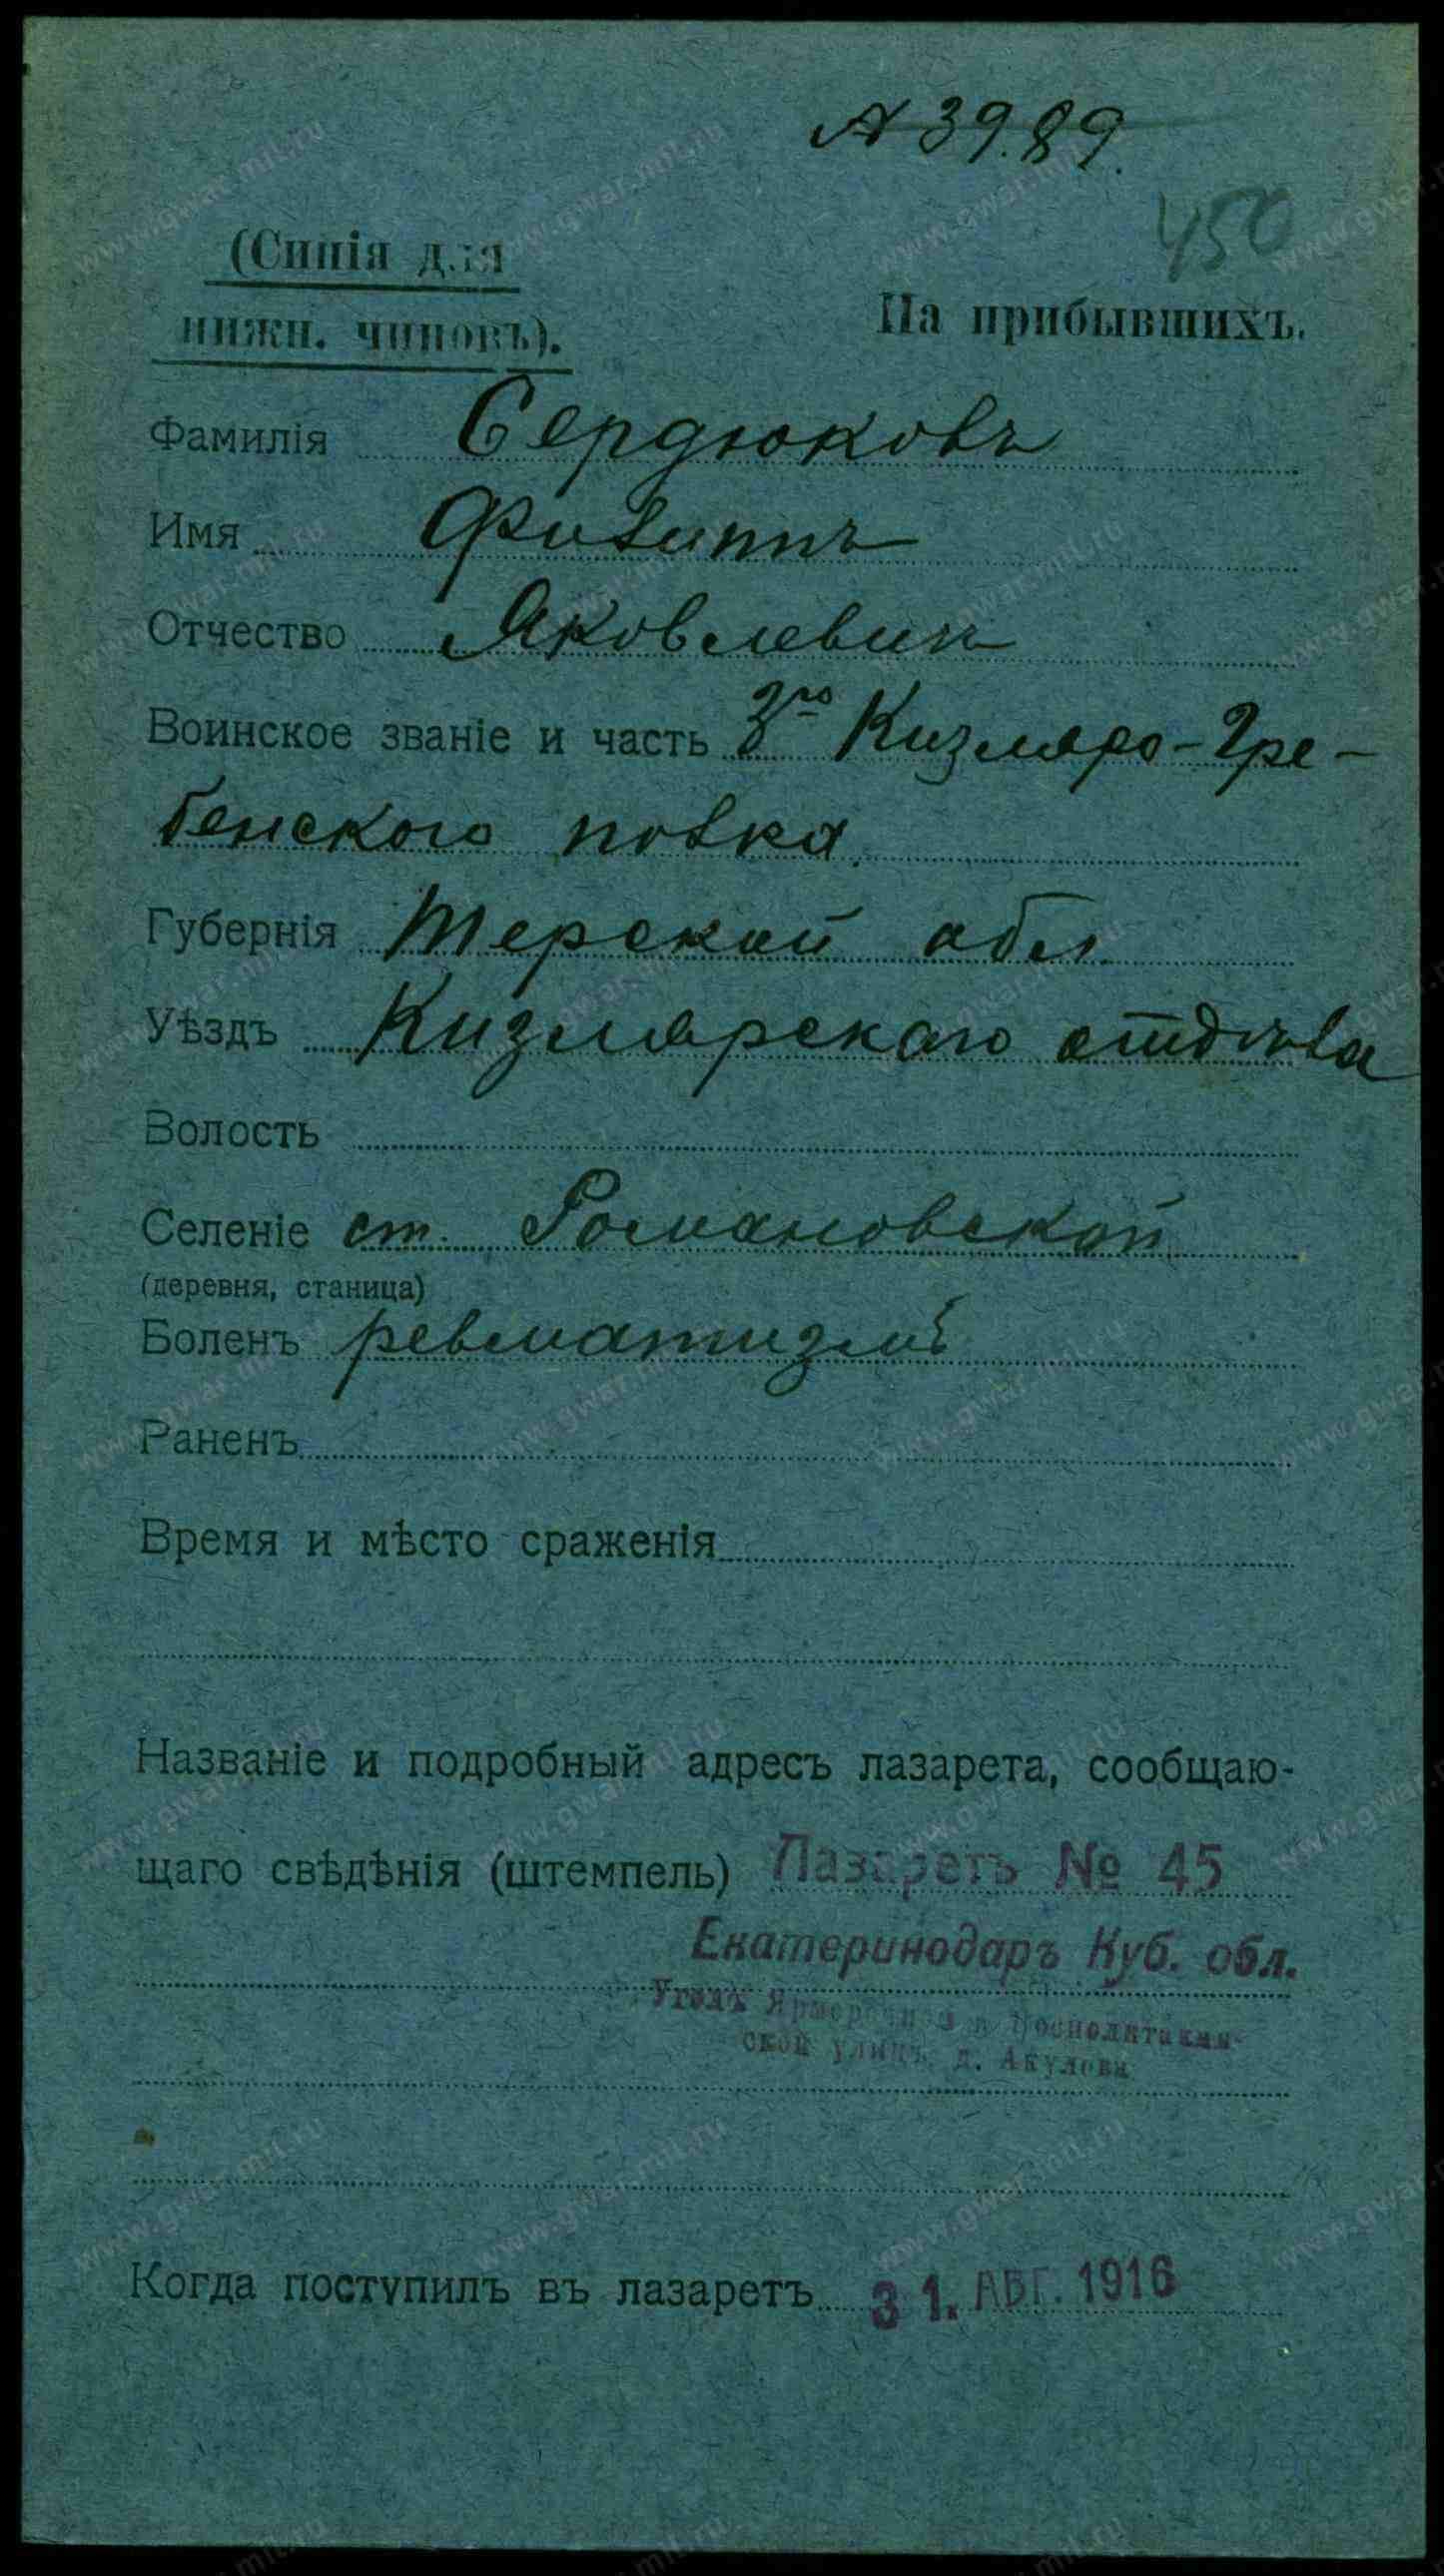 А 3989.
450
(Синія для
нижн. чиновъ).
На прибывшихъ.
Фамилія Сердюковъ
Имя Филиппъ
Отчество Яковлевичъ
Воинское званіе и часть 3го Кизляро-Гре-
бенского полка.
Губернія Терской обл.
Уѣздъ Кизлярскаго отдѣла
Волость
Селеніе ст. Романовской
(деревня, станица)
Боленъ ревматизмъ
Раненъ
Время и мѣсто сраженія
Названіе и подробный адресъ лазарета, сообщаю-
щаго свѣдѣнія (штемпель) Лазаретъ № 45
Екатеринодаръ Куб. обл.
Уголъ Ярмарочной и
ской улицъ, д. Акулова
Когда поступилъ въ лазаретъ 31. АВГ. 1916
www.gwar.mil.ru